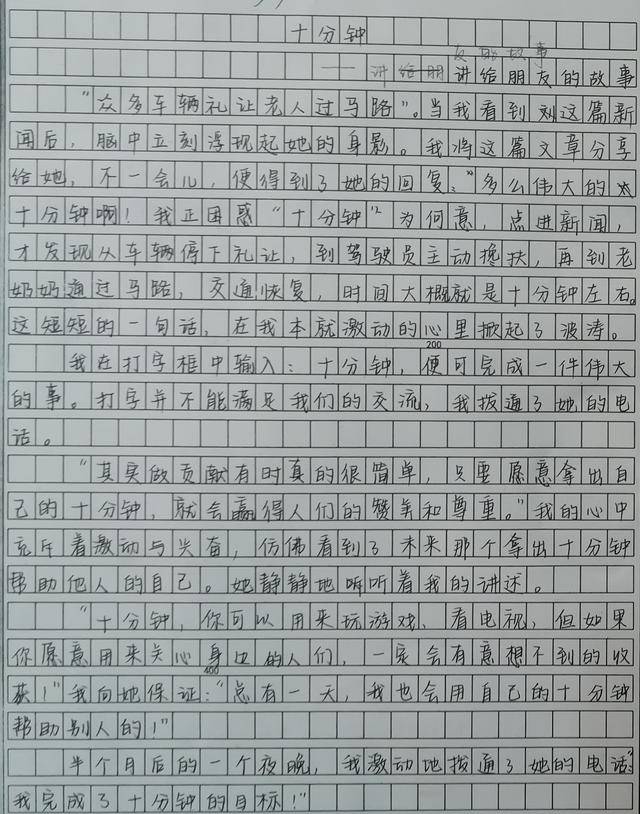 十分钟
——讲给朋友的故事
讲给朋友的故事
“众多车辆礼让老人过马路”。当我看到刘这篇新
闻后，脑中立刻浮现起她的身影。我将这篇文章分享
给她，不一会儿，便得到了她的回复：“多么伟大的
十分钟啊！我正困惑“十分钟”为何意，点进新闻，
才发现从车辆停下礼让，到驾驶员主动搀扶，再到老
奶奶通过马路，交通恢复，时间大概就是十分钟左右。
这短短的一句话，在我本就激动的心里掀起了波涛。
200
我在打字框中输入：十分钟，便可完成一件伟大
的事。打字并不能满足我们的交流，我拨通了她的电
话。
“其实做贡献有时真的很简单，只要愿意拿出自
己的十分钟，就会赢得人们的赞美和尊重。”我的心中
充斥着激动与兴奋，仿佛看到了未来那个拿出十分钟
帮助他人的自己。她静静地听听着我的讲述。
“十分钟，你可以用来玩游戏、看电视，但如果
你愿意用来关心身边的人们，一定会有意想不到的收
400
获！”我向她保证：“总有一天，我也会用自己的十分钟
帮助别人的！”
半个月后的一个夜晚，我激动地拨通了她的电话：“
我完成了十分钟的目标！”